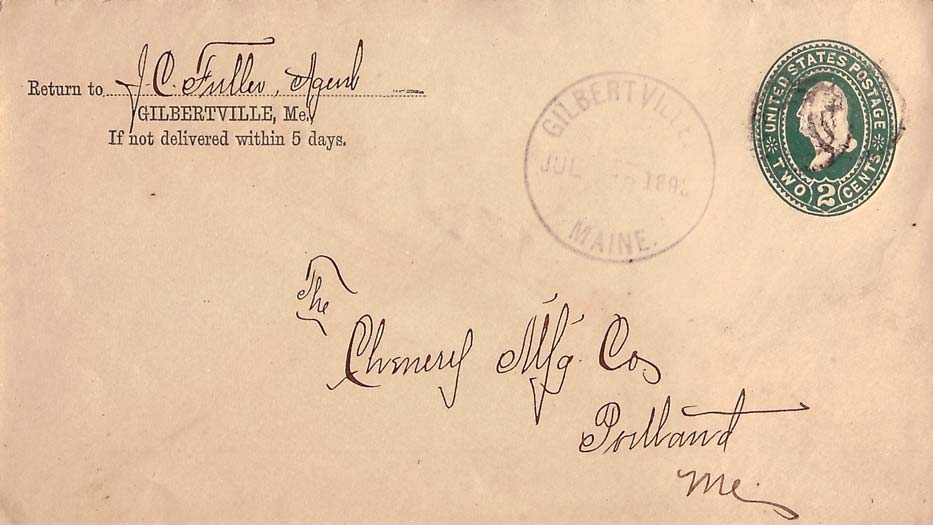 Return to J. C. Fuller, Agent
GILBERTVILLE, Me.
If not delivered within 5 days.
GILBERTVILLE
JUL 1892
MAINE.
UNITED STATES POSTAGE
TWO 2 CENTS
The
Chenery Mfg. Co
Portland
Me.